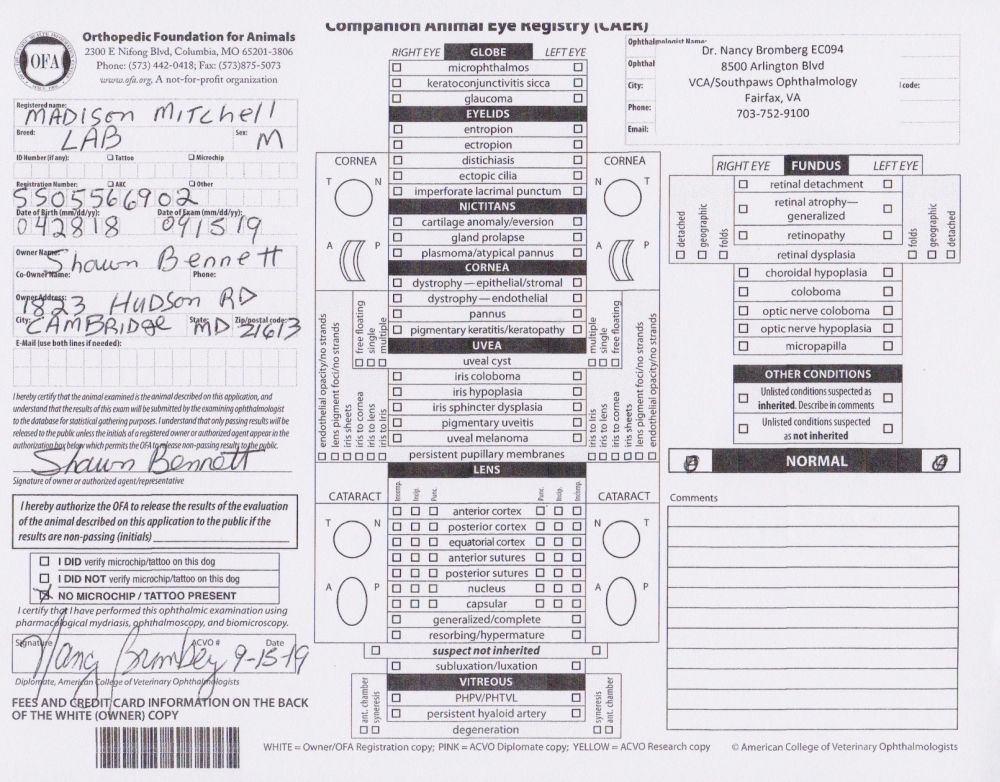 Companion Animal Eye Registry (CAER)
OFA
Orthopedic Foundation for Animals
2300 E Nifong Blvd, Columbia, MO 65201-3806
Phone: (573) 442-0418; Fax: (573)875-5073
www.ofa.org. A not-for-profit organization
Registered name:
MADISON MITCHELL
Breed: Sex:
LAB M
ID Number (if any): Tattoo Microchip
Registration Number: AKC Other
SS05566902
Date of Birth (mm/dd/yy): Date of Exam (mm/dd/yy):
042818 091519
Owner Name:
Shawn Bennett
Co-Owner Name: Phone:
Owner Address:
1823 HUDSON RD
City: State: Zip/postal code:
CAMBRIDGE MD 21613
E-Mail (use both lines if needed):
I hereby certify that the animal examined is the animal described on this application, and
understand that the results of this exam will be submitted by the examining ophthalmologist
to the database for statistical gathering purposes. I understand that only passing results will be
released to the public unless the initials of a registered owner or authorized agent appear in the
authorization box below which permits the OFA to release non-passing results to the public.
Shawn Bennett
Signature of owner or authorized agent/representative
I hereby authorize the OFA to release the results of the evaluation
of the animal described on this application to the public if the
results are non-passing (initials)
I DID verify microchip/tattoo on this dog
I DID NOT verify microchip/tattoo on this dog
NO MICROCHIP / TATTOO PRESENT
I certify that I have performed this ophthalmic examination using
pharmacological mydriasis, ophthalmoscopy, and biomicroscopy.
Signature ACVO # Date
Nancy Bromberg 9-15-19
Diplomate, American College of Veterinary Ophthalmologists
FEES AND CREDIT CARD INFORMATION ON THE BACK
OF THE WHITE (OWNER) COPY
RIGHT EYE GLOBE LEFT EYE
microphthalmos
keratoconjunctivitis sicca
glaucoma
EYELIDS
entropion
ectropion
distichiasis
ectopic cilia
imperforate lacrimal punctum
NICTITANS
cartilage anomaly/eversion
gland prolapse
plasmoma/atypical pannus
CORNEA
dystrophy — epithelial/stromal
dystrophy — endothelial
pannus
pigmentary keratitis/keratopathy
UVEA
uveal cyst
iris coloboma
iris hypoplasia
iris sphincter dysplasia
pigmentary uveitis
uveal melanoma
persistent pupillary membranes
CORNEA
T N
A P
CORNEA
N T
A P
free floating
single
multiple
endothelial opacity/no strands
lens pigment foci/no strands
iris sheets
iris to cornea
iris to lens
iris to Iris
multiple
single
free floating
iris to Iris
iris to lens
iris to cornea
iris sheets
lens pigment foci/no strands
endothelial opacity/no strands
LENS
CATARACT Incomp. Incip. Punc. Punc. Incip. Incomp. CATARACT
anterior cortex
posterior cortex
equatorial cortex
anterior sutures
posterior sutures
nucleus
capsular
generalized/complete
resorbing/hypermature
T N
A P
N T
A P
suspect not inherited
subluxation/luxation
VITREOUS
PHPV/PHTVL
persistent hyaloid artery
degeneration
ant. chamber
syneresis
syneresis
ant. chamber
Ophthalmologist Name:
Dr. Nancy Bromberg EC094
Ophthal
8500 Arlington Blvd
City: VCA/Southpaws Ophthalmology code:
Fairfax, VA
Phone: 703-752-9100
Email:
RIGHT EYE FUNDUS LEFT EYE
retinal detachment
retinal atrophy—
generalized
retinopathy
retinal dysplasia
detached
geographic
folds
folds
geographic
detached
choroidal hypoplasia
coloboma
optic nerve coloboma
optic nerve hypoplasia
micropapilla
OTHER CONDITIONS
Unlisted conditions suspected as
inherited. Describe in comments
Unlisted conditions suspected
as not inherited
NORMAL
Comments
WHITE = Owner/OFA Registration copy; PINK = ACVO Diplomate copy; YELLOW = ACVO Research copy © American College of Veterinary Ophthalmologists